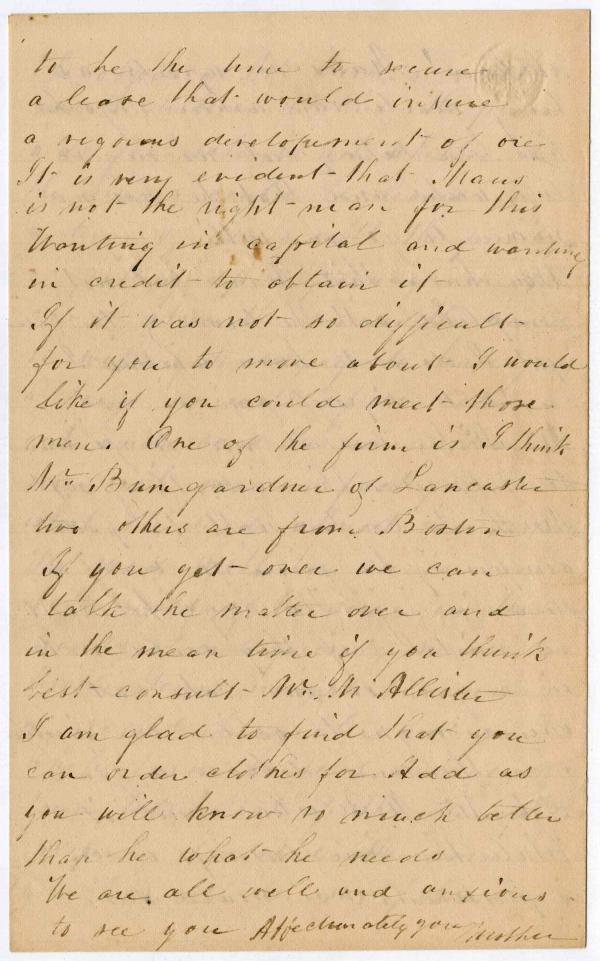 to be the time to secure
a lease that would insure
a vigorous developement of ore
It is very evident that Maus
is not the right man for this
Wanting in capital and wanting
in credit to obtain it
If it was not so difficult
for you to move about I would
like if you could meet those
men. One of the firm is I think
Mr. Bumgardner of Lancaster
two others are from Boston
If you get over we can
talk the matter over and
in the mean time if you think
best consult Mr. McAllister
I am glad to find that you
can order clothes for Add as
you will know so much better
than he what he needs
We are all well and anxious
to see you Affectionately your Mother